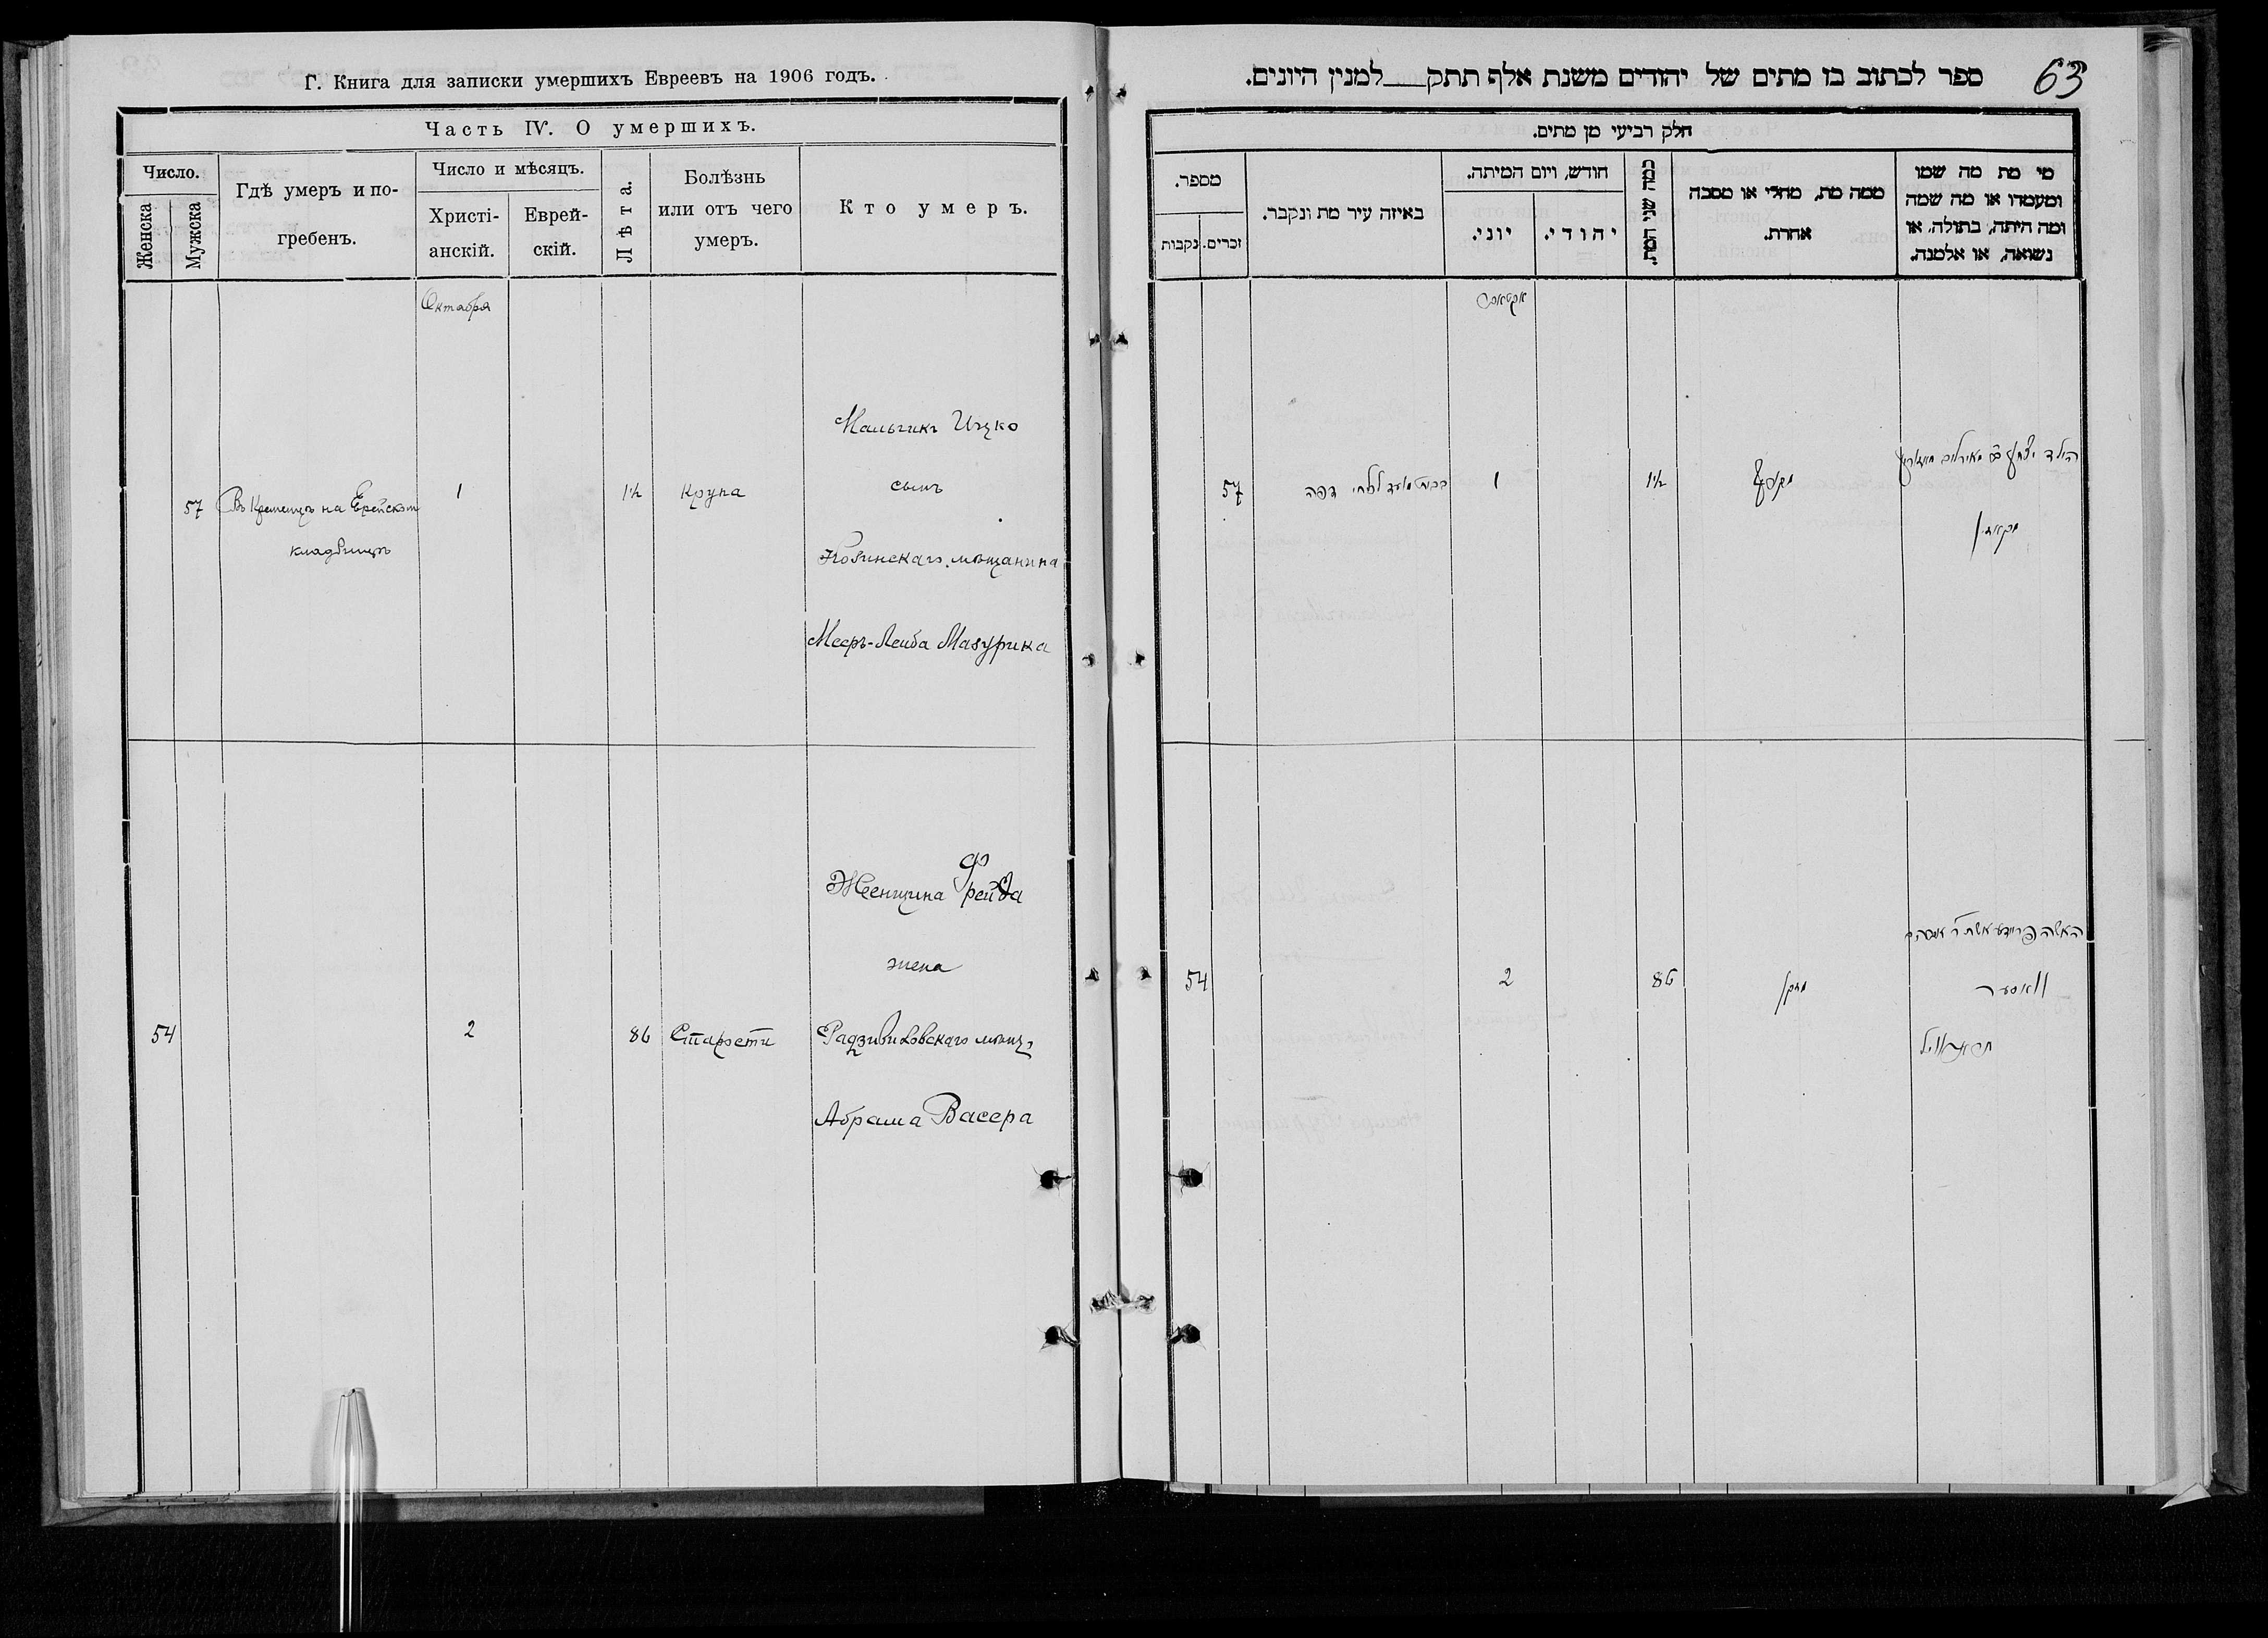 Г. Книга для записки умершихъ Евреевъ на 1906 годъ.
Часть IV. О умершихъ.
Число.
Женска
Мужска
Гдѣ умеръ и по-
гребенъ.
Число и мѣсяцъ.
Христі-
анскій.
Еврей-
скій.
Лѣта.
Болѣзнь
или отъ чего
умеръ.
Кто умеръ.
Октября
57
Въ Кременцѣ на Еврейском
кладбищѣ
1
1½
крупа
Мальчикъ Ицко
сынъ
мѣщанина
Мееръ-Лейба Мазурика
54
2
86
Старости
Женщина Фрейда
жена
Радзивиловскаго мѣщ
Абрама Васера
63
ספר לכתוב בו מתים של יהודים משנת אלף תתק למנין היונים.
חלק רביעי מן מתים.
מספר.
נקבות
זכרים.
באיזה עיר מת ונקבר.
חודש, ויום המיתה.
יוני.
יהודי.
כמה שני המת.
ממה מת, מחלי או מסבה
אחרת.
מי מת מה שמו
ומעמדו או מה שמה
ומה היתה, בתולה, או
נשואה, או אלמנה.
57
1
1½
הילד יצחק
54
2
86
מזקן
האשה פריידא אשת ר'
וואסער